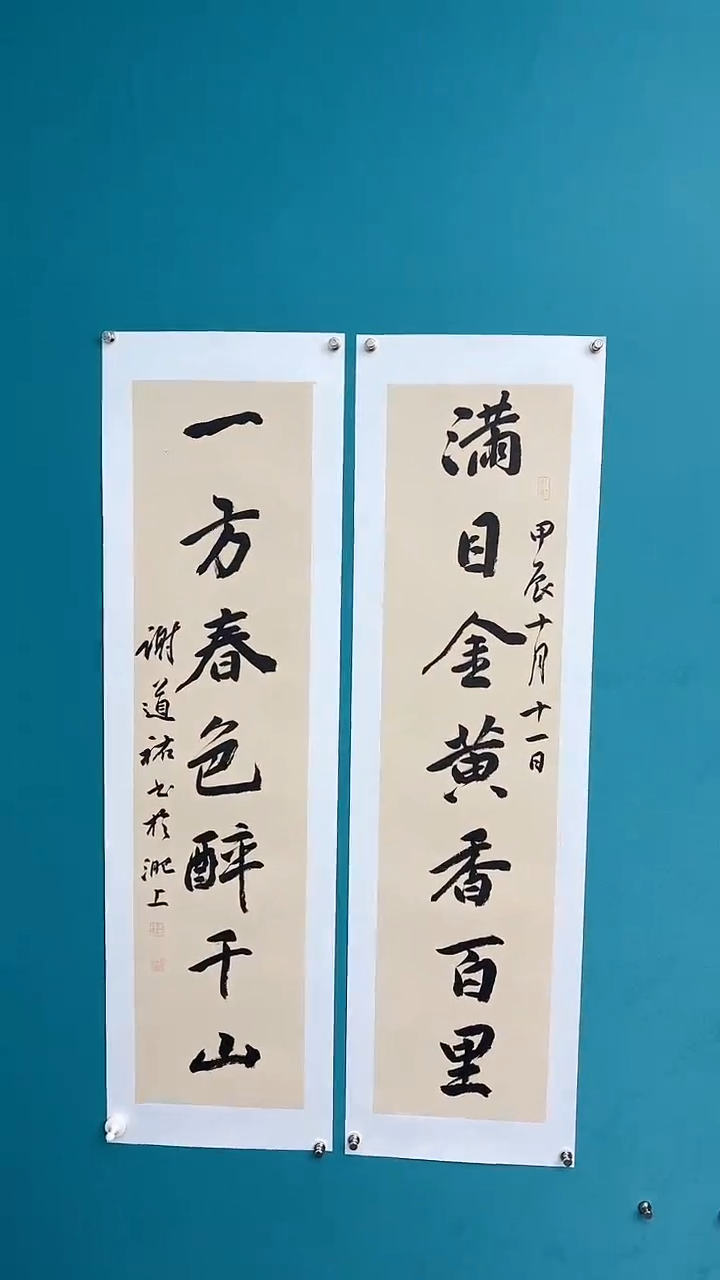 满目金黄香百里
甲辰十月十一日
一方春色醉千山
谢道祐书于淝上